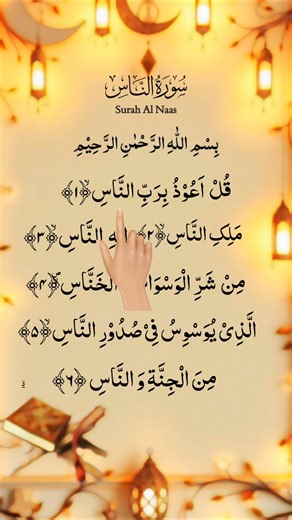 سُورَةُ النَّاسِ
Surah Al Naas
بِسْمِ اللّٰهِ الرَّحْمٰنِ الرَّحِيْمِ
قُلْ اَعُوْذُ بِرَبِّ النَّاسِۙ﴿۱﴾
مَلِكِ النَّاسِۙ﴿۲﴾ النَّاسِۙ﴿۳﴾
مِنْ شَرِّ الْخَنَّاسِ۪ۙ﴿۴﴾
الَّذِیْ یُوَسْوِسُ فِیْ صُدُوْرِ النَّاسِۙ﴿۵﴾
مِنَ الْجِنَّةِ وَ النَّاسِ﴿۶﴾